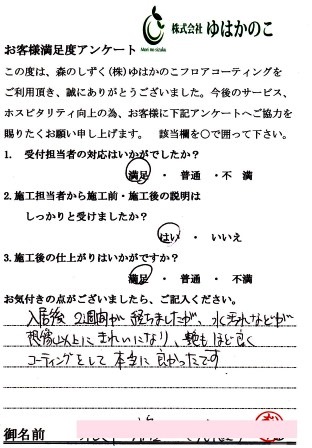 株式会社 ゆはかのこ
Mori no sizuku
お客様満足度アンケート
この度は、森のしずく(株)ゆはかのこフロアコーティングを
ご利用頂き、誠にありがとうございました。今後のサービス、
ホスピタリティ向上の為、お客様に下記アンケートへご協力を
賜りたくお願い申し上げます。 該当欄を〇で囲って下さい。
1. 受付担当者の対応はいかがでしたか?
満足 ・ 普通 ・不 満
2.施工担当者から施工前・施工後の説明は
しっかりと受けましたか?
はい ・ いいえ
3.施工後の仕上がりはいかがですか?
満足 ・ 普通 ・ 不満
お気付きの点がございましたら、ご記入ください。
入居後 2週間が経ちましたが、水汚れなどが
想像以上にきれいになり、艶もほど良く
コーティングをして本当に良かったです
御名前